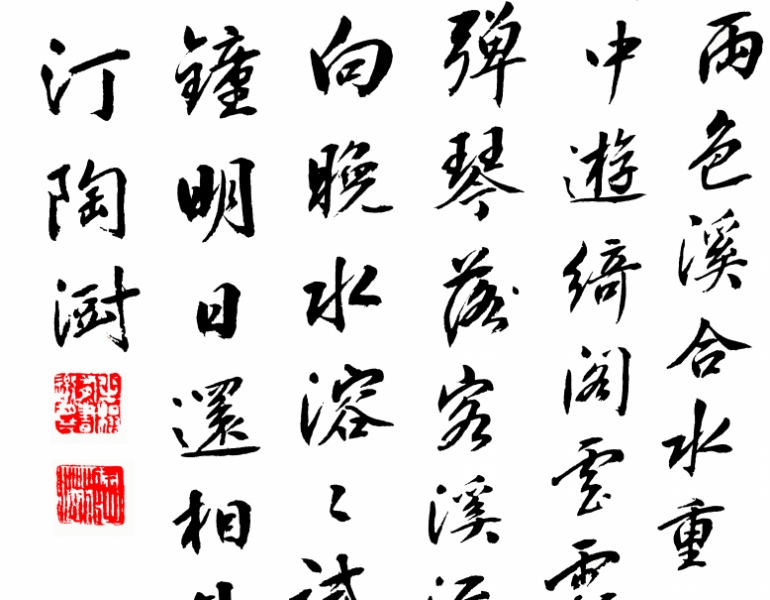 雨色溪合水重
中遊綺阁雲霞
弹琴落客溪
向晚水溶〻試
鐘明日還相
汀陶澍